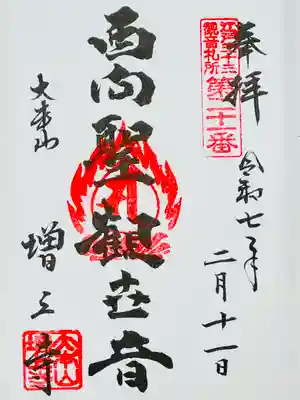 奉拝
令和七年
二月十一日
江戸三十三
観音札所
第二十一番
西向聖観世音
大本山
増上寺